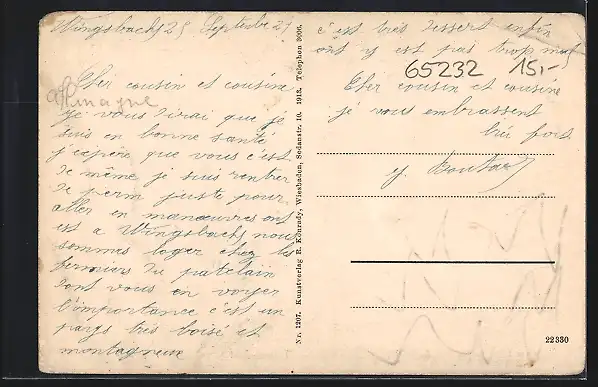 Wingsbach 25 Septembre 27
Cher cousin et cousine
je vous dirai que je
suis en bonne santé
j'espère que vous c'est
de même je suis rentrer
de perm juste pour
aller en manœuvres ont
est a Wingsbach nous
sommes loger chez les
fermiers du patelain
dont vous en voyer
l'importance c'est un
pays très boisé et
montagneux
Nr. 1207. Kunstverlag R. Konrady, Wiesbaden, Sedanstr. 10. 1913. Telephon 3006.
c'est très dessert enfin
ont y est pas trop mal
65232 15,-
Cher cousin et cousine
je vous embrassent
bien fort
22330